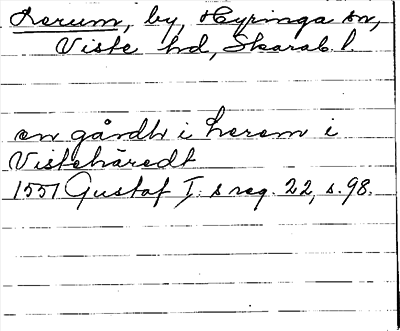 Lerum, by, Hyringa sn,
Viste hd, Skarab. l.
en gårdh i Lerem i
Vistehäredt
1551 Gustaf I:s reg. 22, s. 98.